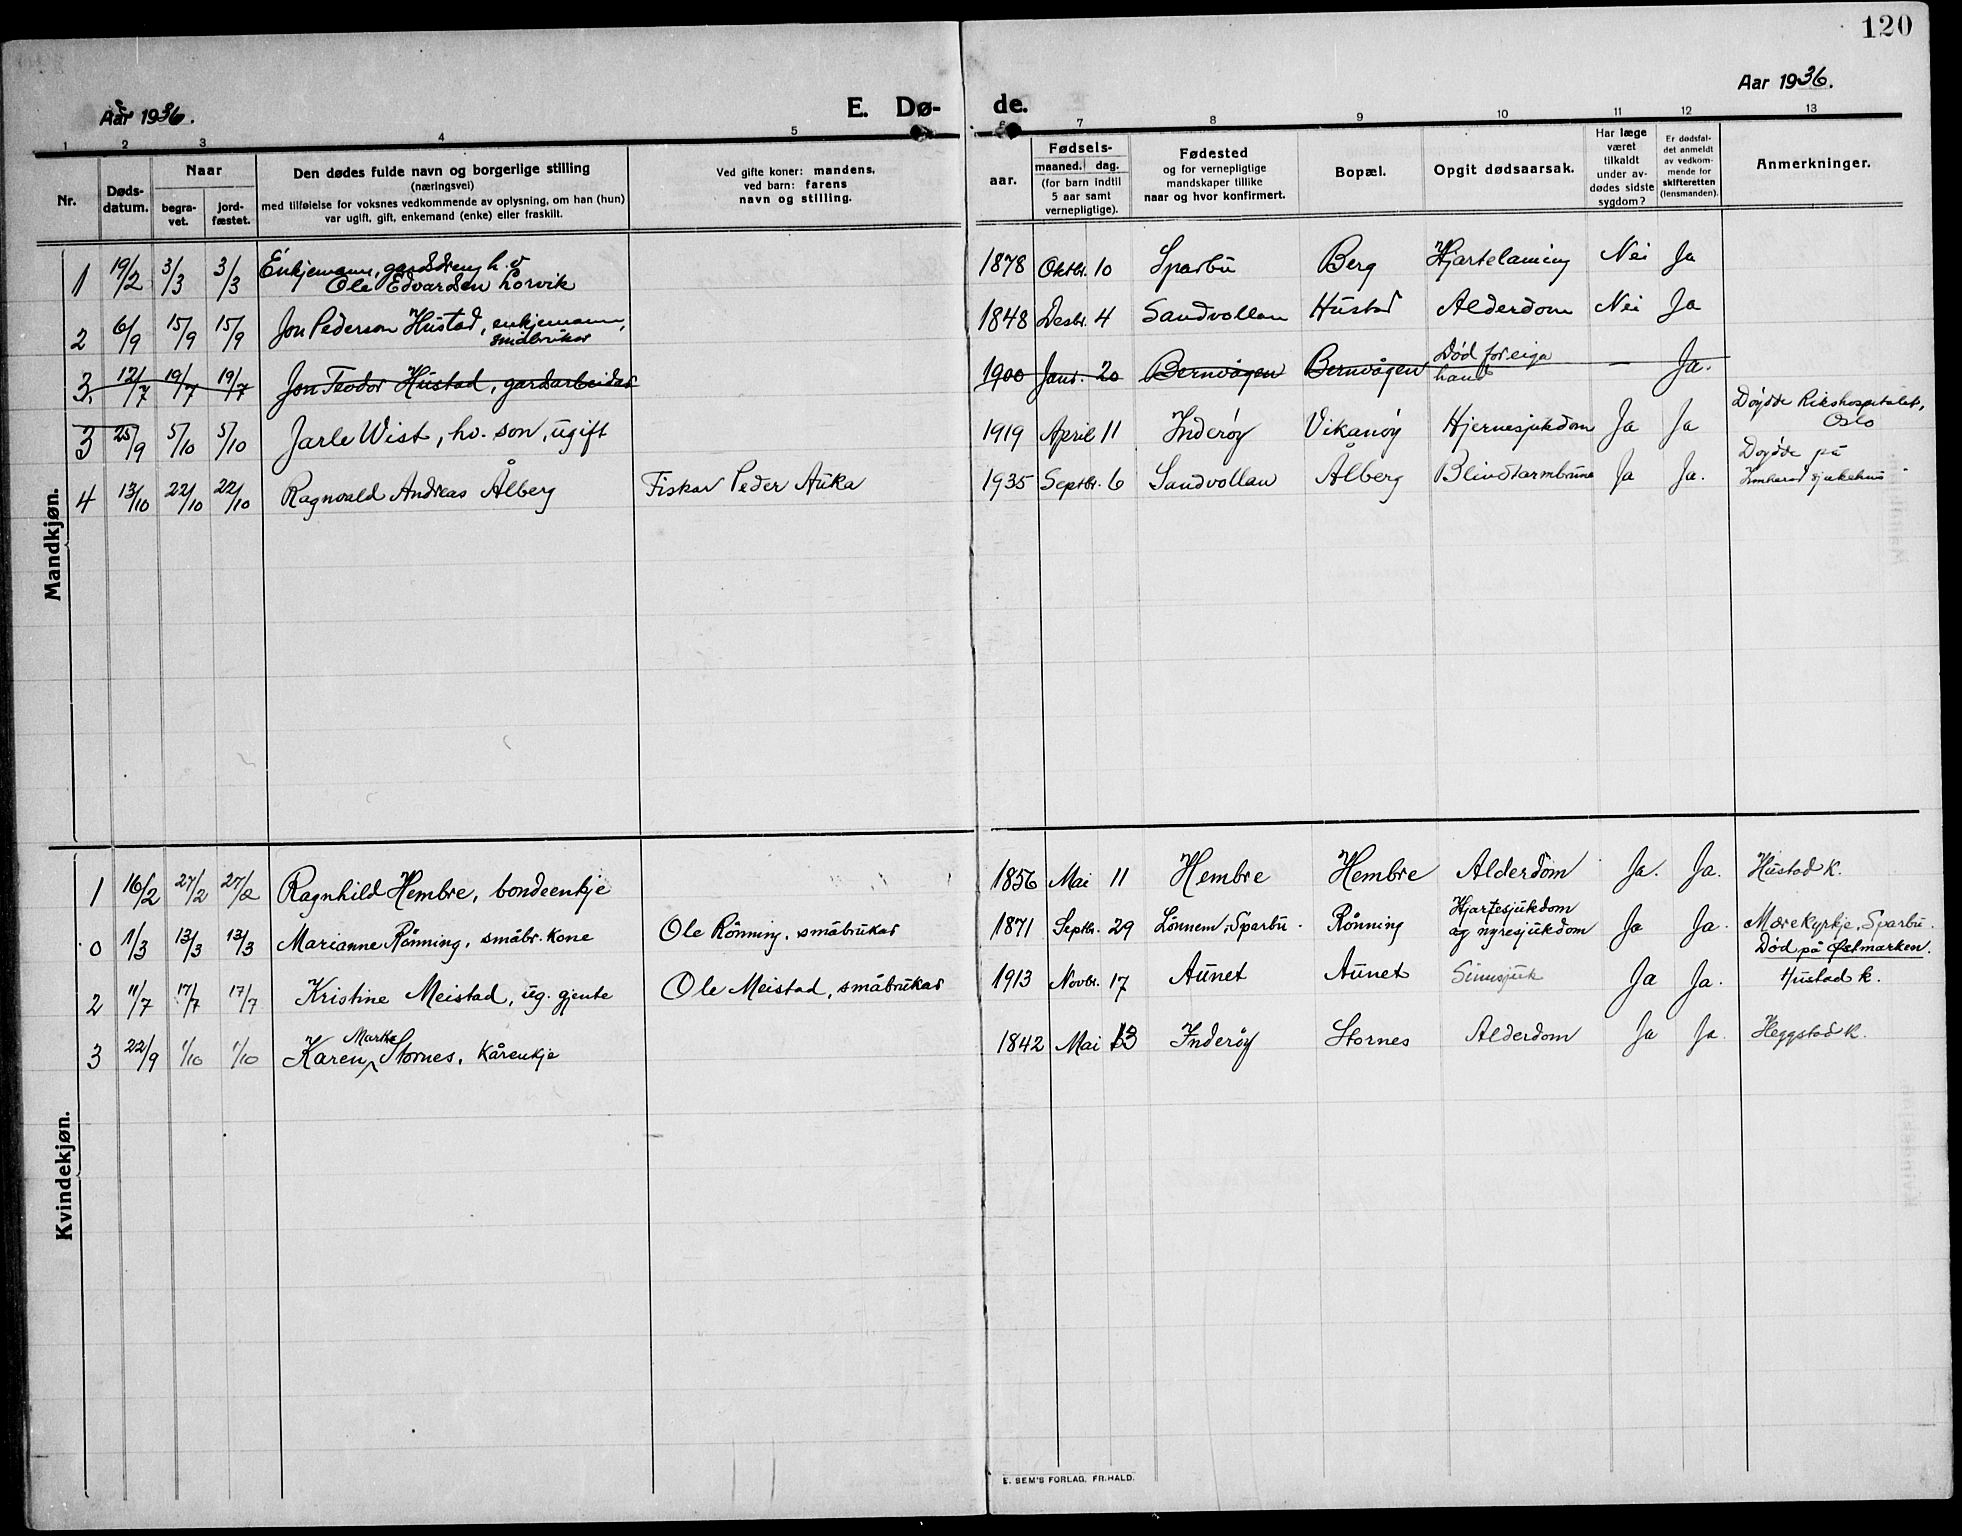 120
Aar 1936.
E. Dø-
de.
Aar 1936.
1 2 3 4 5 6 7 8 9 10 11 12 13
Nr.
Døds-
datum.
Naar
begra-
vet.
jord-
fæstet.
Den dødes fulde navn og borgerlige stilling
(næringsvei)
med tilføielse for voksnes vedkommende av oplysning, om han (hun)
var ugift, gift, enkemand (enke) eller fraskilt.
Ved gifte koner: mandens,
ved barn: farens
navn og stilling.
Fødsels-
aar.
maaned. dag.
(for barn indtil
5 aar samt
vernepligtige).
Fødested
og for vernepligtige
mandskaper tillike
naar og hvor konfirmert.
Bopæl.
Opgit dødsaarsak.
Har læge
været
tilkaldt
under av-
dødes sidste
sygdom?
Er dødsfal-
det anmeldt
av vedkom-
mende for
skifteretten
(lensmanden).
Anmerkninger.
Mandkjøn.
1 19/2 3/3 3/3 Enkjemann, gardsdreng h. v
Ole Edvardsen Lorvik 1878 Oktbr. 10 Sparbu Berg Hjartelaming Nei Ja
2 6/9 15/9 15/9 Jon Pederson Hustad, enkjemann,
småbrukar 1848 Desbr. 4 Sandvollan Hustad Alderdom Nei Ja
3. 12/7 19/7 19/7 Jon Teodor Hustad, gardarbeidar 1900 Janr. 20 Bernvågen Bernvågen Død for eiga
hand — Ja.
3 25/9 5/10 5/10 Jarle Wist, hv. son, ugift 1919 April 11 Inderøy Vikanøy Hjernesjukdom Ja Ja Døydde Rikshospitalet,
Oslo
4 13/10 22/10 22/10 Ragnvald Andreas Ålberg Fiskar Peder Auka 1935 Septbr. 6 Sandvollan Ålberg Blindtarmbrune Ja Ja. Døydde på
sjukehus
Kvindekjøn.
1 16/2 27/2 27/2 Ragnhild Hembre, bondeenkje 1856 Mai 11 Hembre Hembre Alderdom Ja. Ja. Hustad k.
0 1/3 13/3 13/3 Marianne Rønning, småbr. kone Ole Rønning, småbrukar 1871 Septbr. 29 Lønnem, Sparbu. Rønning Hjartesjukdom
og nyresjukdom Ja Ja. Mære kyrkje, Sparbu.
Død på Østmarken.
2 11/7 17/7 17/7 Kristine Meistad, ug. gjente Ole Meistad, småbrukar 1913 Novbr. 17 Aunet Aunet Sinnsjuk Ja Ja. Hustad k.
3 22/9 1/10 1/10 Karen Marta Stornes, kårenkje 1842 Mai 13 Inderøy Stornes Alderdom Ja Ja. Heggstad k.
E. SEM'S FORLAG, FR.HALD.